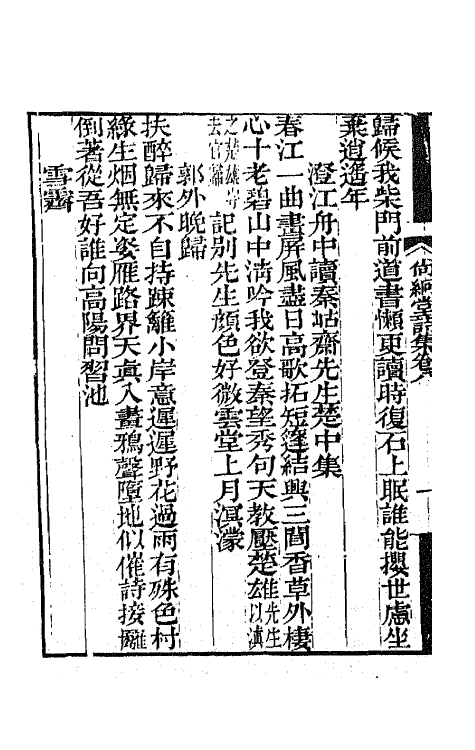 尙絅堂詩集卷八
一
歸候我柴門前道書懶更讀時復石上眠誰能攖世慮坐
棄逍遙年
澄江舟中讀秦岵齋先生楚中集
春江一曲畫屏風盡日高歌拓短篷結興三閭香草外棲
心十老碧山中淸吟我欲登秦望秀句天敎壓楚雄先生以滇
之楚雄守去官歸記別先生顔色好微雲堂上月溟濛
郭外晚歸
扶醉歸來不自持疎籬小岸意遲遲野花過雨有殊色村
緣生烟無定姿雁路界天眞入畫鴉聲墮地似催詩接䍦
倒著從吾好誰向高陽問習池
雪霽